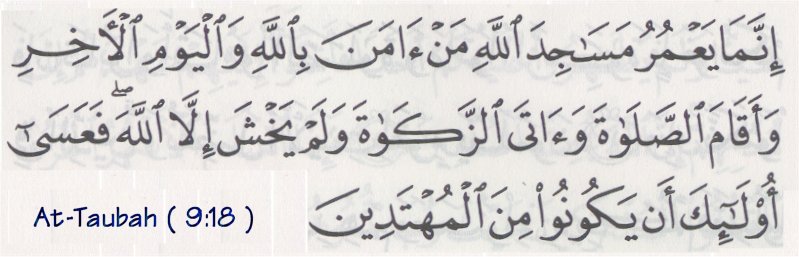 إِنَّمَا يَعْمُرُ مَسَـٰجِدَ ٱللَّهِ مَنْ ءَامَنَ بِٱللَّهِ وَٱلْيَوْمِ ٱلْـَٔاخِرِ
وَأَقَامَ ٱلصَّلَوٰةَ وَءَاتَى ٱلزَّكَوٰةَ وَلَمْ يَخْشَ إِلَّا ٱللَّهَ ۖ فَعَسَىٰٓ
أُو۟لَـٰٓئِكَ أَن يَكُونُوا۟ مِنَ ٱلْمُهْتَدِينَ
At-Taubah ( 9:18 )